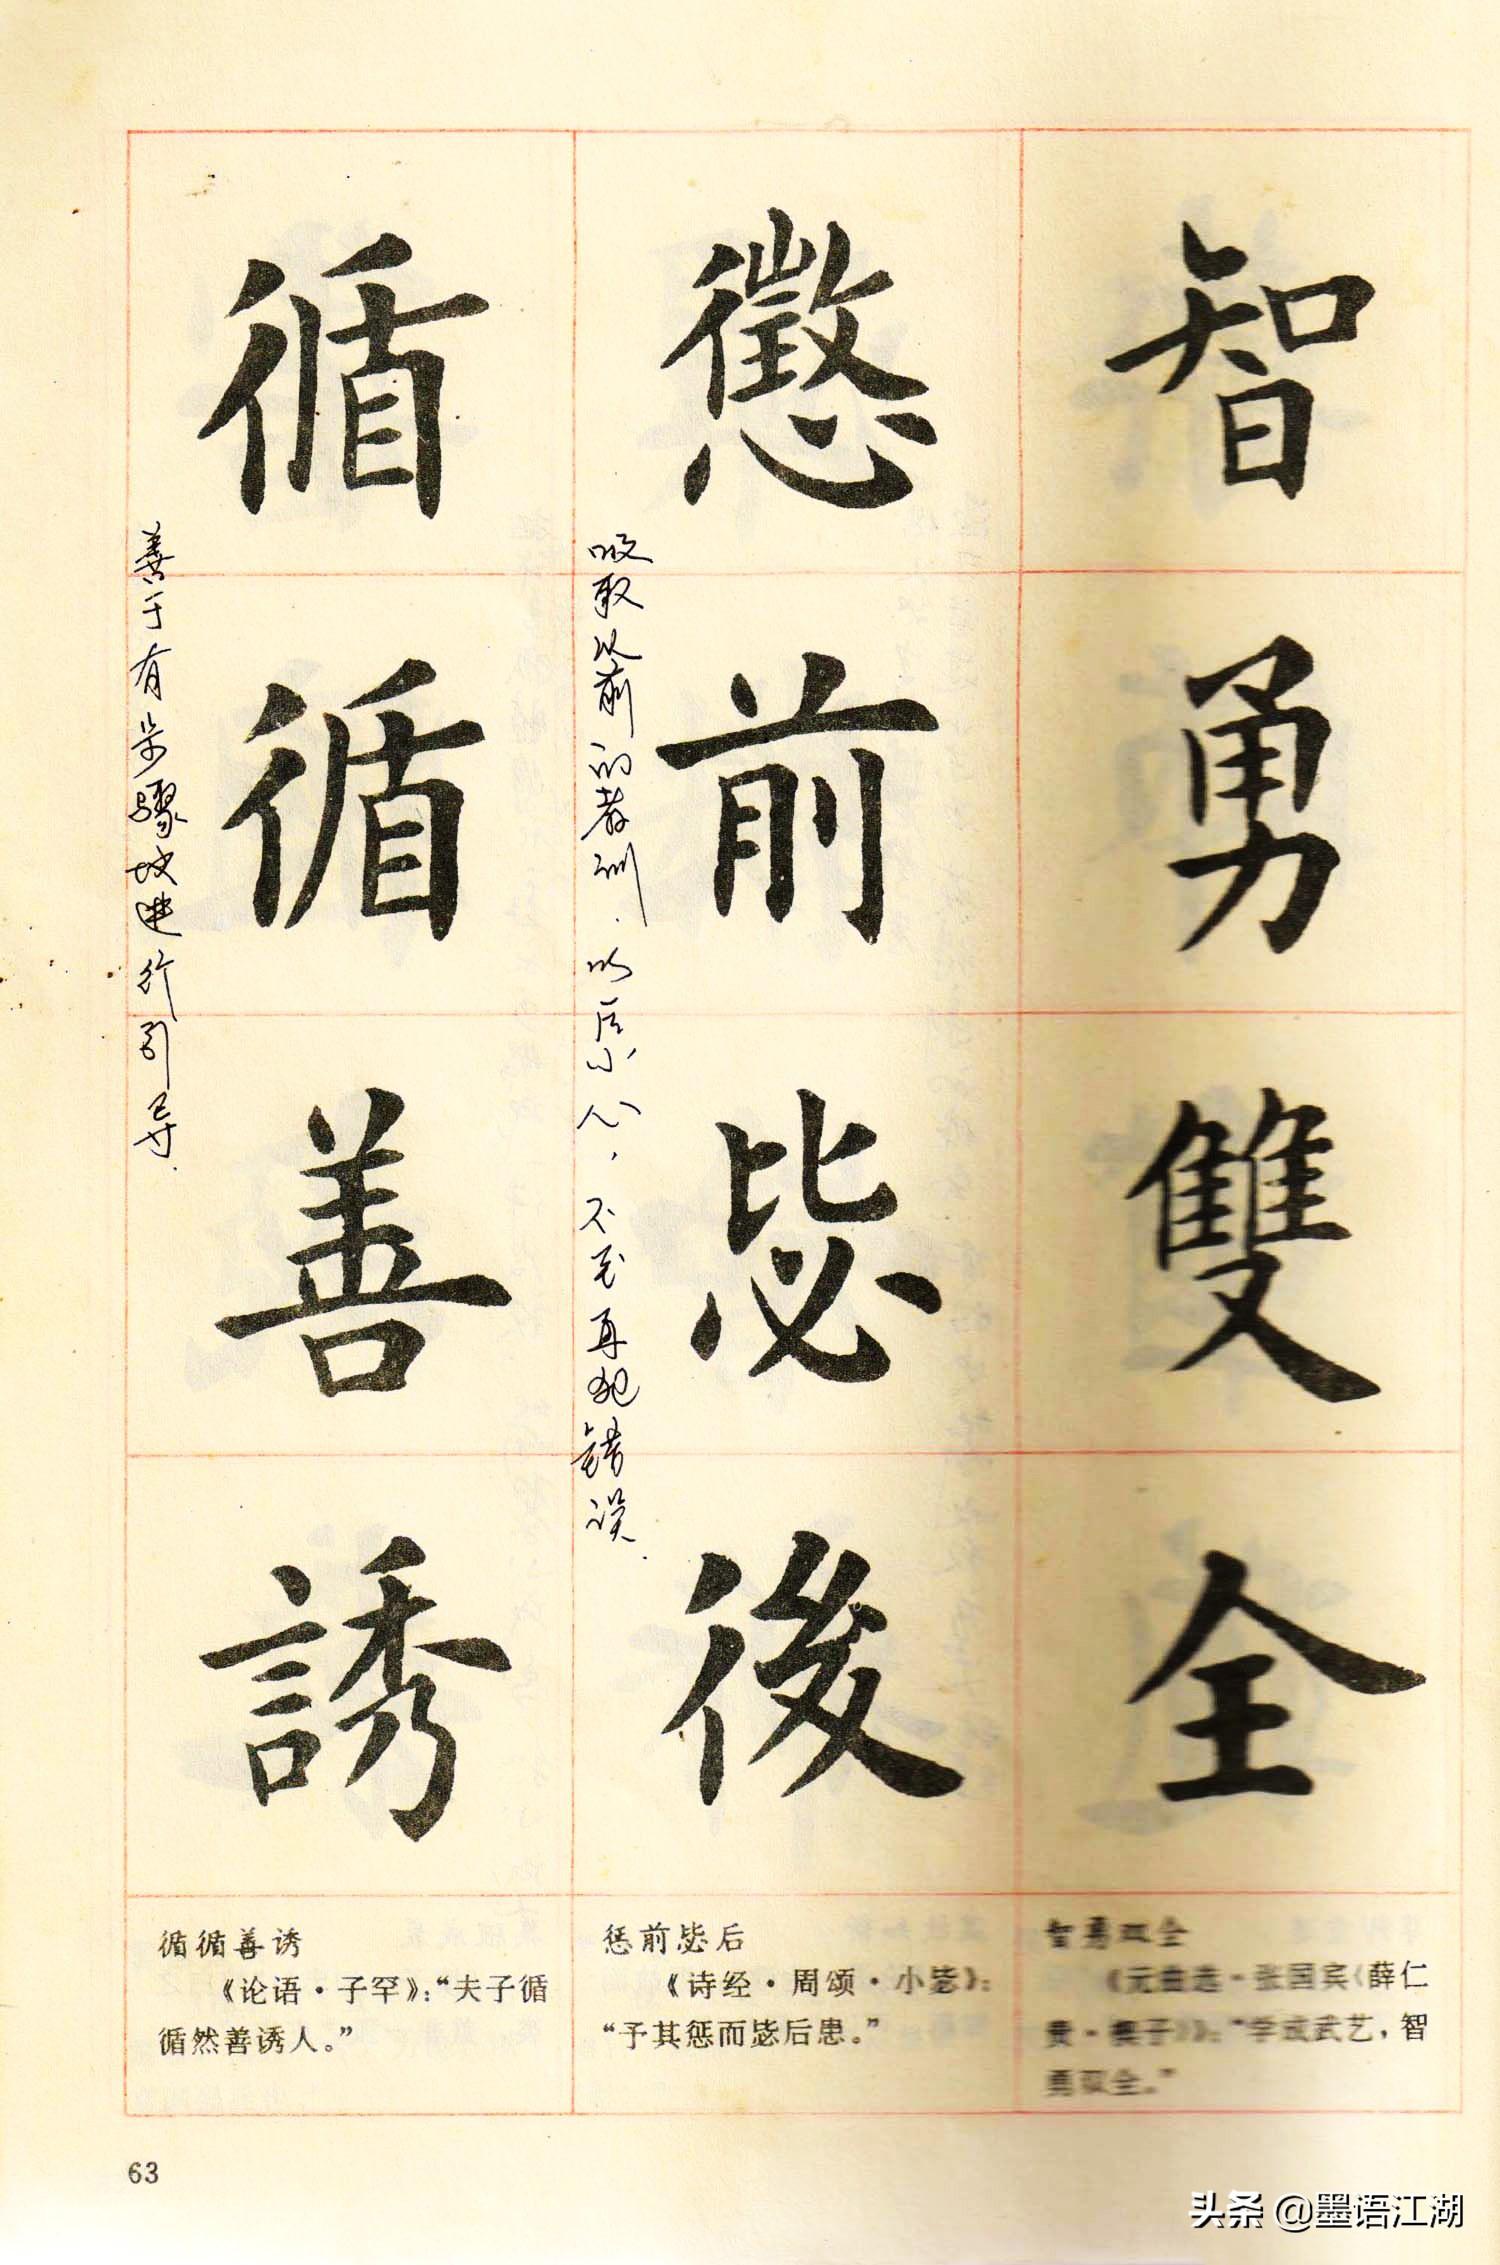 智勇雙全
懲前毖後
吸取以前的教训.以后小心,不至再犯错误.
循循善誘
善于有步骤地进行引导.
智勇双全
《元曲选·张国宾〈薛仁
贵·楔子〉》:“学成武艺,智
勇双全。”
惩前毖后
《诗经·周颂·小毖》:
“予其惩而毖后患。”
循循善诱
《论语·子罕》:“夫子循
循然善诱人。”
63
头条 @墨语江湖